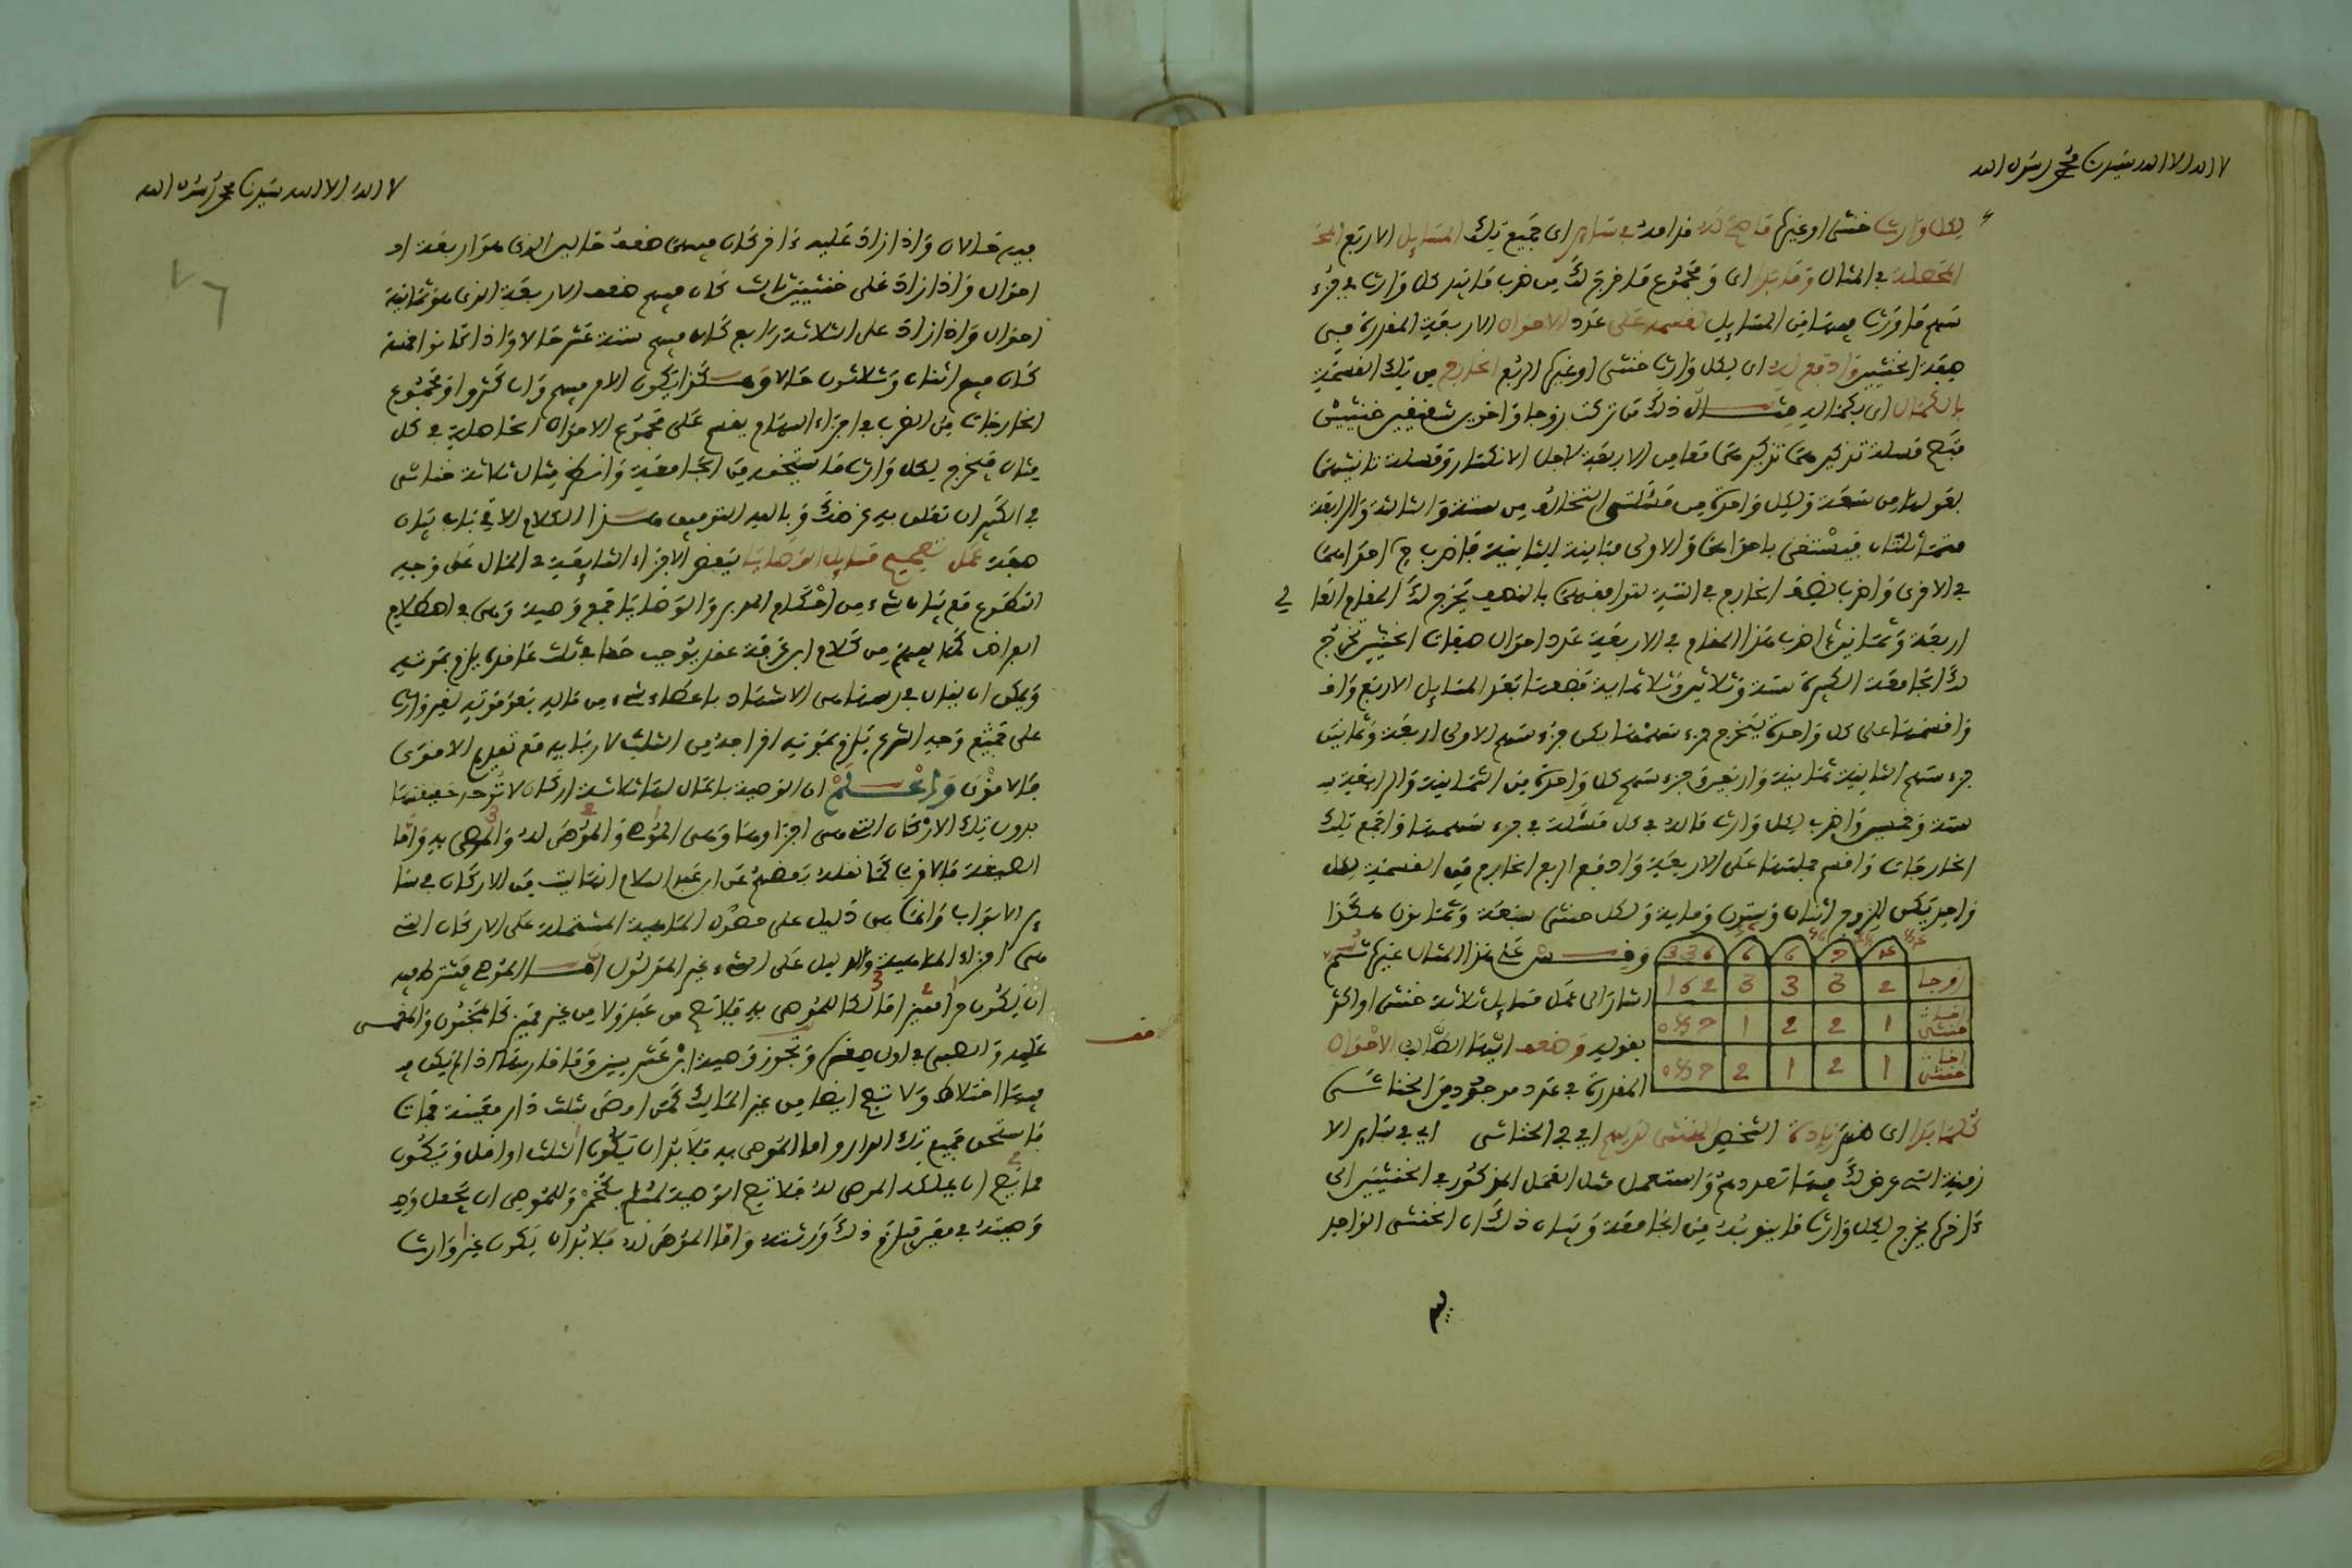 لا اله الا الله سيدنا محمد رسول الله
لكل وارث خنثى او غيرها ما صح له فرامه في ساير اى جميع تلك المسايل الاربع
المحصلة في المثال وقابلها اى ومجموع ما خرج لك من ضرب ما بيد كل وارث في جزء
سهم ما ورث منها من المسايل اقسمه على عدد الاحوال الاربعة المقدرة في
هيئة الخنثيين وادفع له اى لكل وارث خنثى او غيرها الربع الخارج من تلك القسمة
بالكمال اى بكماله مثال ذلك من تركت زوجا واخوين شقيقين خنثيين
فتصح مسئلة تذكيرهما من الاربعة لاجل الانكسار ومسئلة تانيثهما
بعولها من سبعة وكل واحدة من مسئلتى التخالف من ستة والثالثة والرابعة
متماثلتان فيستغنى باحداهما والاولى مباينة للثانية فاضرب احداهما
في الاخرى واضرب الخارج في الستة لتوافقهما بالنصف يخرج لك المقام
اربعة وثمانين اضرب هذا المقام في الاربعة عدد احوال هيئات الخنثيين تخرج
لك الجامعة الكبيرة ستة وثلاثين وثلاثماية فضعها بعد المسايل الاربع
واقسمها على كل واحدة يخرج جزء سهمها يكن جزء سهم الاولى اربعة وثمانين
جزء سهم الثانية ثمانية واربعين وجزء سهم كل واحدة من الثالثة والرابعة
ستة وخمسين واضرب لكل وارث ماله في كل مسئلة في جزء سهمها واجمع تلك
الخارجات واقسم جملتها على الاربعة وادفع الربع الخارج من القسمة لكل
واحد يكن للزوج اثنان وستون وماية ولكل خنثى سبعة وثمانون هكذا
336 6 6 7 4
زوجا 2 3 3 3 162
خنثى 1 2 2 1 087
خنثى 1 2 1 2 087
وقس على هذا المثال غيره ثم
اشار الى عمل مسايل ثلاثة خنثى او اكثر
بقوله وضعف ايها الطالب الاحوال
المقدرة في عدد موجود من الخناثى
كلما بدا اى ظهر زيادة الشخص الخنثى لديهم اي في الخناثى اي في ساير الا
زمنة التى عرض لك فيها تعددهم واستعمل مثل العمل المذكور في الخنثيين الى
ءاخرها يخرج لكل وارث ما ينوبه من الجامعة وبيان ذلك ان الخنثى الواحد
لا اله الا الله سيدنا محمد رسول الله
فيه حالان واذا زاد عليه ءاخر كان فيهما ضعف حاليه الذى هو اربعة
احوال واذا زاد على خنثيين ثالث كان فيهم ضعف الاربعة الذى هو ثمانية
احوال واذا زاد على الثلاثة رابع كان فيهم ستة عشر حالا واذا كانوا خمسة
كان فيهم اثنان وثلاثون حالا وهكذا يكون الامر فيهم وان كثروا ومجموع
الخارجات من الضرب في اجزاء السهام يقسم على مجموع الاحوال الحاصلة في كل
مثال فيخرج لكل وارث ما يستحقه من الجامعة وانظر مثال ثلاثة خناثى
في الكبير ان تعلق به غرضك وبالله التوفيق هذا الكلام الاتي باب بيان
صفة عمل تصحيح مسايل الوصايا ببعض الاجزاء الشايعة في المال على وجه
التطوع مع بيان شيء من احكام المدبر والوصايا جمع وصية وهى في اصطلاح
الفراض كما يفهم من كلام ابن عرفة عقد يوجب حقا في ثلث عاقده يلزم بموته
ويمكن ان يقال في رسمها هى الاشهاد باعطاء شيء من ماله بعد موته لغير وارث
على جميع وجه الشرع يلزم بموته اخراجه من الثلث لا زيادة مع تقديم الاقوى
فالاقوى واعلم ان الوصية بالمال لها ثلاثة اركان لا توجد حقيقتها
بدون تلك الاركان التى هى اجزاؤها وهى الموصى والموصى له والموصى به واما
الصيغة فالاقرب كما نقله بعضهم عن ابن عبد السلام انها ليست من الاركان في
الابواب وانما هى دليل على حصول الماهية المشتملة على الاركان التى
هى اجزاء الماهية والدليل على الشيء غير المدلول اما الموصى فيشترط فيه
ان يكون حرا مميزا مالكا للموصى به فلا تصح من عبد ولا من غير مميز كالمجنون والمغمى
عليه والصبى في اول صغره وتجوز وصية ابن عشر سنين وما قاربها اذا لم يكن
فيها اختلاط ولا تصح ايضا من غير المالك كمن اوصى بثلث دار معينة فمات
فاستحق جميع تلك الدار واما الموصى به فلا بد ان يكون الثلث او اقل ويكون
مما يصح ان يملكه الموصى له فلا تصح الوصية لمسلم بكخمر وللموصى ان يجعل
وصيته في معين فيلزم ذلك ورثته واما الموصى له فلا بد ان يكون غير وارث